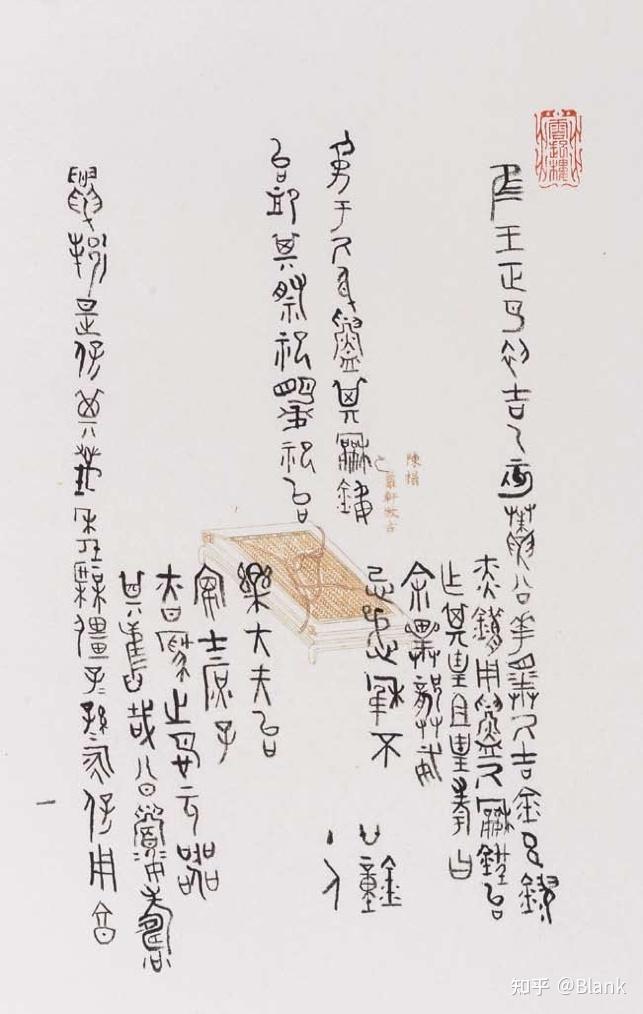 隹王正月初吉乙亥邾公華擇厥吉金玄鏐
赤鏞用鑄厥龢鐘台
乍其皇且皇考曰
余畢龏威
忌淑穆不
于厥身鑄其龢鐘
台卹其祭祀盟祀台
樂大夫台
宴士庶子
昚為之名元器
其舊哉公眉壽
邾邦是保其萬年無疆子子孫孫永保用享
知乎 @Blank